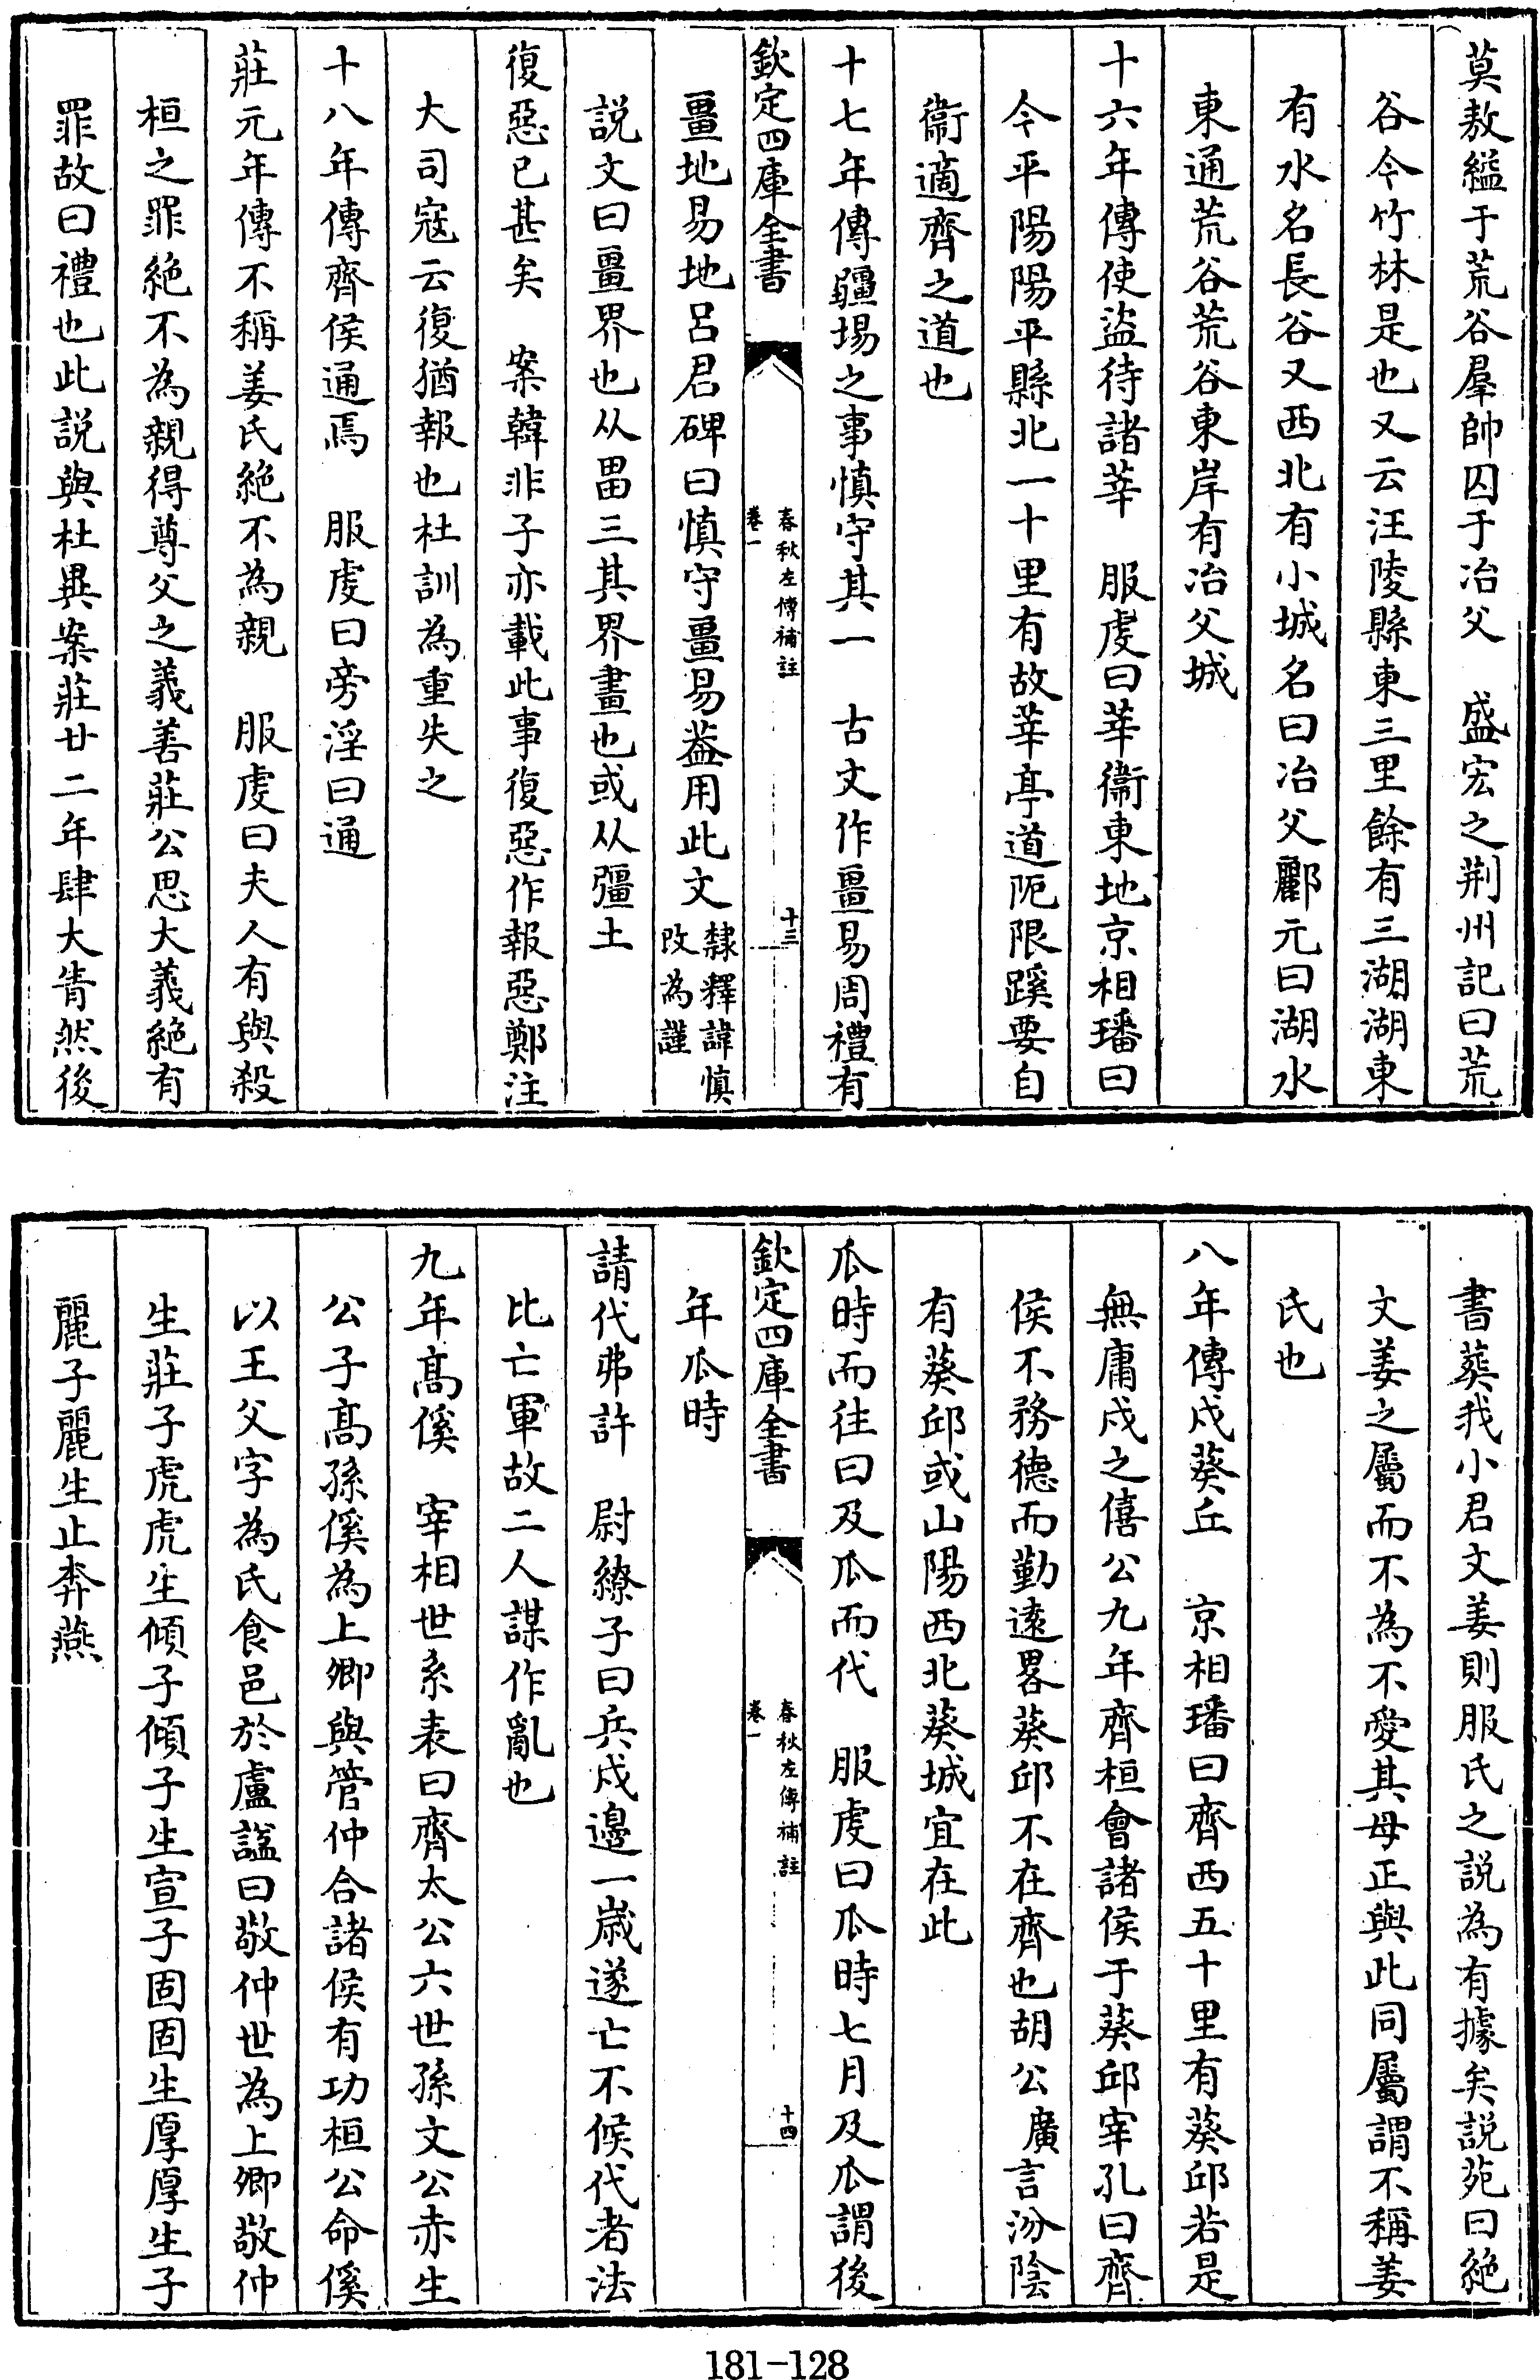 莫敖縊于荒谷羣帥囚于冶父　盛宏之荆州記曰荒
谷今竹林是也又云汪陵縣東三里餘有三湖湖東
有水名長谷又西北有小城名曰冶父酈元曰湖水
東通荒谷荒谷東岸有冶父城
十六年傳使盜待諸莘　服虔曰莘衞東地京相璠曰
今平陽陽平縣北一十里有故莘亭道阨限蹊要自
衞適齊之道也
十七年傳疆場之事慎守其一　古文作畺易周禮有
欽定四庫全書
春秋左傳補註
卷一
十三
畺地易地呂君碑曰慎守畺易葢用此文
隸釋諱慎
改為謹
説文曰畺界也从畕三其界畫也或从彊土
復惡已甚矣　案韓非子亦載此事復惡作報惡鄭注
大司寇云復猶報也杜訓為重失之
十八年傳齊侯通焉　服虔曰旁淫曰通
莊元年傳不稱姜氏絶不為親　服虔曰夫人有與殺
桓之罪絶不為親得尊父之義善莊公思大義絶有
罪故曰禮也此説與杜異案莊廿二年肆大眚然後
書葬我小君文姜則服氏之説為有據矣説苑曰絶
文姜之屬而不為不愛其母正與此同屬謂不稱姜
氏也
八年傳戍葵丘　京相璠曰齊西五十里有葵邱若是
無庸戍之僖公九年齊桓會諸侯于葵邱宰孔曰齊
侯不務德而勤逺畧葵邱不在齊也胡公廣言汾陰
有葵邱或山陽西北葵城宜在此
瓜時而往曰及瓜而代　服虔曰瓜時七月及瓜謂後
欽定四庫全書
春秋左傳補註
卷一
十四
年瓜時
請代弗許　尉繚子曰兵戍邊一嵗遂亡不候代者法
比亡軍故二人謀作亂也
九年髙傒　宰相世系表曰齊太公六世孫文公赤生
公子髙孫傒為上卿與管仲合諸侯有功桓公命傒
以王父字為氏食邑於盧諡曰敬仲世為上卿敬仲
生莊子虎虎生傾子傾子生宣子固固生厚厚生子
麗子麗生止奔燕
181-128